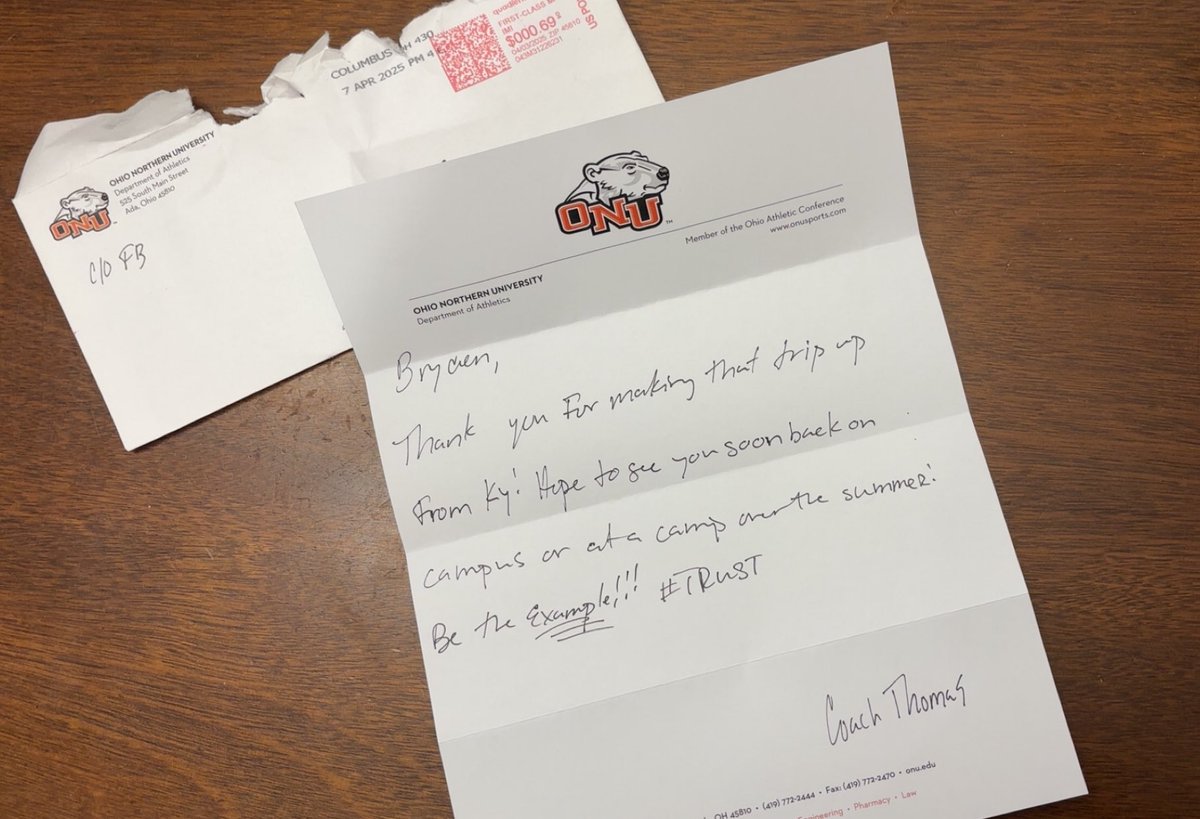 COLUMBUS OH 430
7 APR 2025 PM 4
FIRST-CLASS
IMI
$000.69⁰
04/03/2025 ZIP 45810
043M31226231
US PO
OHIO NORTHERN UNIVERSITY
Department of Athletics
525 South Main Street
Ada, Ohio 45810
ONU
TM
c/o FB
ONU
TM
Member of the Ohio Athletic Conference
www.onusports.com
OHIO NORTHERN UNIVERSITY
Department of Athletics
Bryden,
Thank you For making that trip up
From Ky! Hope to see you soon back on
campus or at a camp over the summer!
Be the Example!!! #TRUST
Coach Thomas
OH 45810 • (419) 772-2444 • Fax: (419) 772-2470 • onu.edu
Engineering • Pharmacy • Law